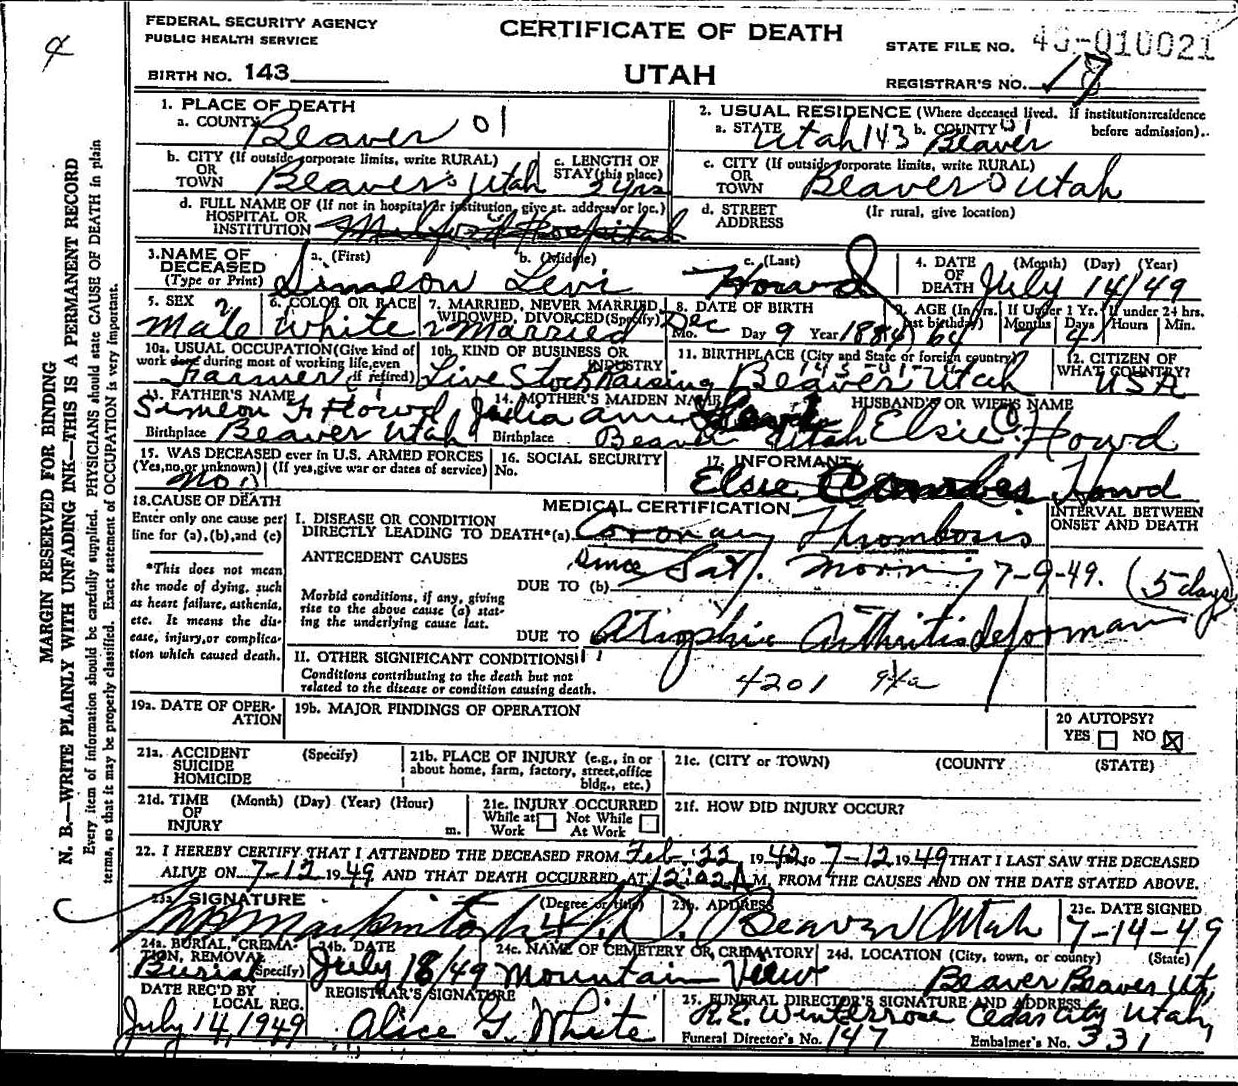 FEDERAL SECURITY AGENCY
PUBLIC HEALTH SERVICE
CERTIFICATE OF DEATH
STATE FILE NO. 49-010021
BIRTH NO. 143
UTAH
REGISTRAR'S NO. 18
MARGIN RESERVED FOR BINDING
N. B.—WRITE PLAINLY WITH UNFADING INK—THIS IS A PERMANENT RECORD
Every item of information should be carefully supplied. PHYSICIANS should state CAUSE OF DEATH in plain
terms, so that it may be properly classified. Exact statement of OCCUPATION is very important.
1. PLACE OF DEATH
a. COUNTY Beaver 01
2. USUAL RESIDENCE (Where deceased lived. If institution: residence before admission).
a. STATE Utah 143 b. COUNTY 01 Beaver
b. CITY (If outside corporate limits, write RURAL) OR TOWN Beaver Utah
c. LENGTH OF STAY (this place) yrs
c. CITY (If outside corporate limits, write RURAL) OR TOWN Beaver Utah
d. FULL NAME OF (If not in hospital or institution, give st. address or loc.) HOSPITAL OR INSTITUTION Milford Hospital
d. STREET ADDRESS (If rural, give location)
3. NAME OF DECEASED (Type or Print)
a. (First) Simeon b. (Middle) Levi c. (Last) Howd
4. DATE OF DEATH (Month) (Day) (Year) July 14/49
5. SEX Male
6. COLOR OR RACE White
7. MARRIED, NEVER MARRIED, WIDOWED, DIVORCED (Specify) Married
8. DATE OF BIRTH Mo. Dec Day 9 Year 1884
9. AGE (In yrs. last birthday) 64 If Under 1 Yr. Months 7 Days If under 24 hrs. Hours Min.
10a. USUAL OCCUPATION (Give kind of work done during most of working life, even if retired) Farmer
10b. KIND OF BUSINESS OR INDUSTRY Live Stock Raising
11. BIRTHPLACE (City and State or foreign country) Beaver Utah
12. CITIZEN OF WHAT COUNTRY? USA
13. FATHER'S NAME Simeon F. Howd
Birthplace Beaver Utah
14. MOTHER'S MAIDEN NAME Julia Ann
Birthplace Beaver Utah
HUSBAND'S OR WIFE'S NAME
Elsie C. Howd
15. WAS DECEASED ever in U.S. ARMED FORCES
(Yes, no, or unknown) (If yes, give war or dates of service) No
16. SOCIAL SECURITY No.
17. INFORMANT
Elsie Howd
18. CAUSE OF DEATH
Enter only one cause per line for (a), (b), and (c)
*This does not mean the mode of dying, such as heart failure, asthenia, etc. It means the disease, injury, or complication which caused death.
MEDICAL CERTIFICATION
INTERVAL BETWEEN ONSET AND DEATH
I. DISEASE OR CONDITION DIRECTLY LEADING TO DEATH* (a) Coronary Thrombosis
ANTECEDENT CAUSES
since Sat. Morning 7-9-49. (5 days)
DUE TO (b)
Morbid conditions, if any, giving rise to the above cause (a) stating the underlying cause last.
DUE TO Atrophic Arthritis deformans
II. OTHER SIGNIFICANT CONDITIONS
Conditions contributing to the death but not related to the disease or condition causing death.
4201 94a
19a. DATE OF OPERATION
19b. MAJOR FINDINGS OF OPERATION
20 AUTOPSY?
YES NO
21a. ACCIDENT SUICIDE HOMICIDE (Specify)
21b. PLACE OF INJURY (e.g., in or about home, farm, factory, street, office bldg., etc.)
21c. (CITY or TOWN) (COUNTY) (STATE)
21d. TIME OF INJURY (Month) (Day) (Year) (Hour) m.
21e. INJURY OCCURRED While at Work Not While At Work
21f. HOW DID INJURY OCCUR?
22. I HEREBY CERTIFY THAT I ATTENDED THE DECEASED FROM Feb 22, 1942 to 7-12 1949 THAT I LAST SAW THE DECEASED
ALIVE ON 7-12 1949 AND THAT DEATH OCCURRED AT 12:02 A M. FROM THE CAUSES AND ON THE DATE STATED ABOVE.
23a SIGNATURE (Degree or title)
23b. ADDRESS Beaver Utah
23c. DATE SIGNED 7-14-49
24a. BURIAL, CREMATION, REMOVAL (Specify) Burial
24b. DATE July 18/49
24c. NAME OF CEMETERY OR CREMATORY Mountain View
24d. LOCATION (City, town, or county) (State) Beaver Beaver Ut.
DATE REC'D BY LOCAL REG. July 14, 1949
REGISTRAR'S SIGNATURE Alice G. White
25. FUNERAL DIRECTOR'S SIGNATURE AND ADDRESS
R.E. Winterrose Cedar City Utah,
Funeral Director's No. 147 Embalmer's No. 331